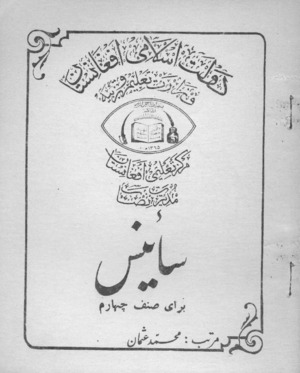 دولت اسلامی افغانستان
وزارت تعلیم و تربیه
مرکز تعلیمی افغانستان
مدیریت نصاب
ساینس
برای صنف چهارم
مرتب : محمد عثمان